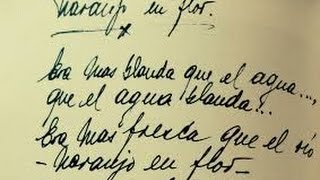 Naranjo en flor.
Era mas blanda que, el agua...,
que el agua blanda...
Era mas fresca que el río
- Naranjo en flor -